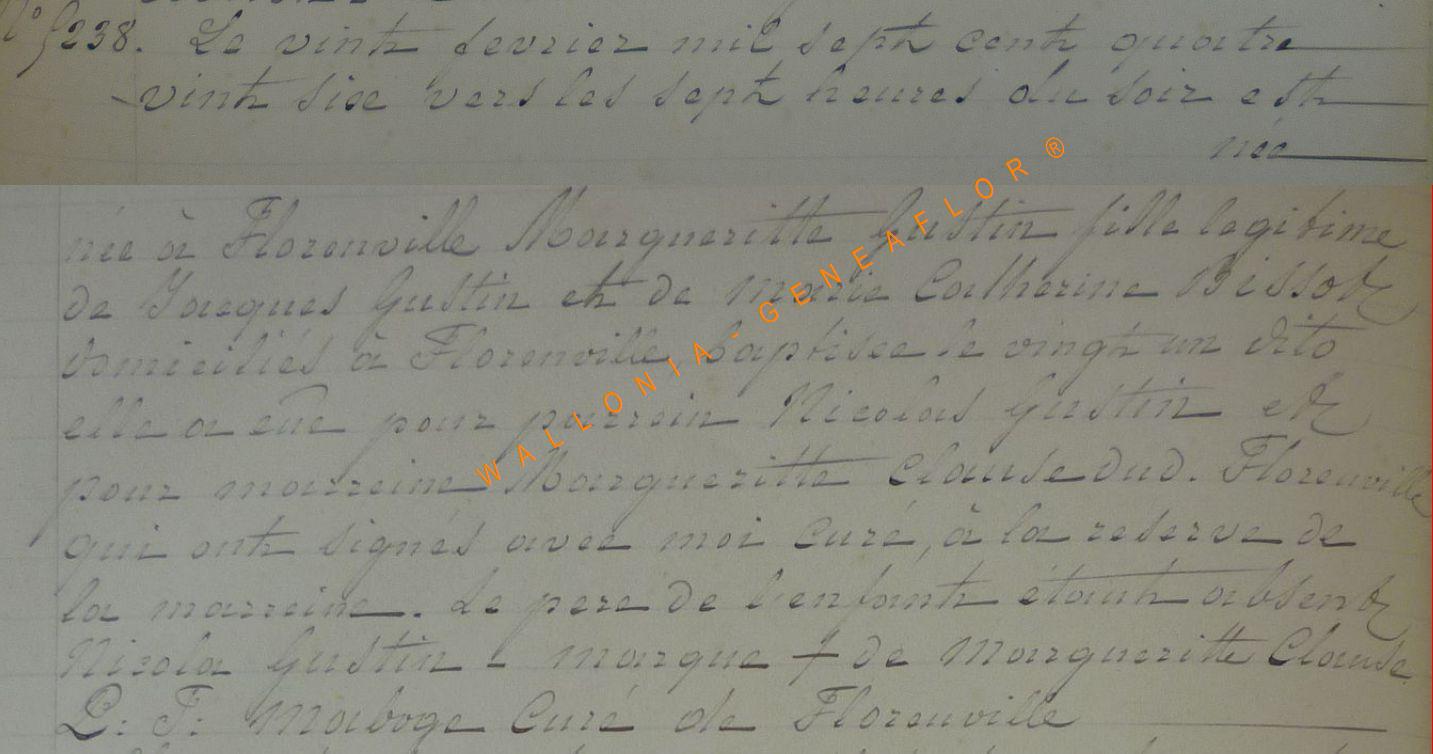 N° 238. Le vint fevrier mil sept cent quatre
vint six vers les sept heures du soir est
née
née à Florenville Margueritte Gustin fille legitime
de Jacques Gustin et de Marie Catherine Bissot
domiciliés à Florenville, baptisee le vingt un dito
elle a eue pour parrein Nicolas Gustin et
pour marreine Margueritte Clause dud. Florenville
qui ont signés avec moi Curé, à la reserve de
la marreine. Le pere de l'enfant étant absent
Nicola Gustin - marque + de Margueritte Clause
P: F: Maboge Curé de Florenville
WALLONIA - GENEAFLOR ®